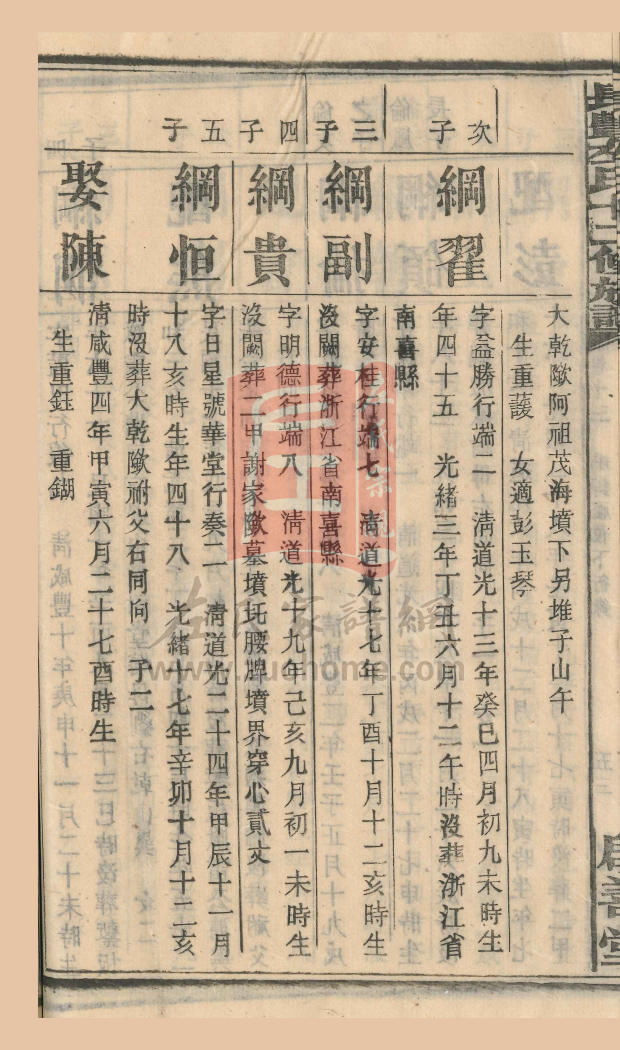 氏十二修族譜
善堂
大乾歐阿祖茂海墳下另堆子山午
生重蘐　女適彭玉琴
次子
綱翟
字益勝行端二　淸道光十三年癸巳四月初九未時生
年四十五　光緒三年丁丑六月十二午時沒葬浙江省
南喜縣
三子
綱副
字安桂行端七　淸道光十七年丁酉十月十二亥時生
沒闕葬浙江省南喜縣
四子
綱貴
字明德行端八　淸道光十九年己亥九月初一未時生
沒闕葬二甲謝家歐墓墳圫腰牌墳界穿心貳丈
五子
綱恒
字日星號華堂行奏二　淸道光二十四年甲辰十一月
十八亥時生年四十八　光緒十七年辛卯十月十二亥
時沒葬大乾歐祔父右同向　子二
娶陳
淸咸豐四年甲寅六月二十七酉時生
生重鈺　重鍸